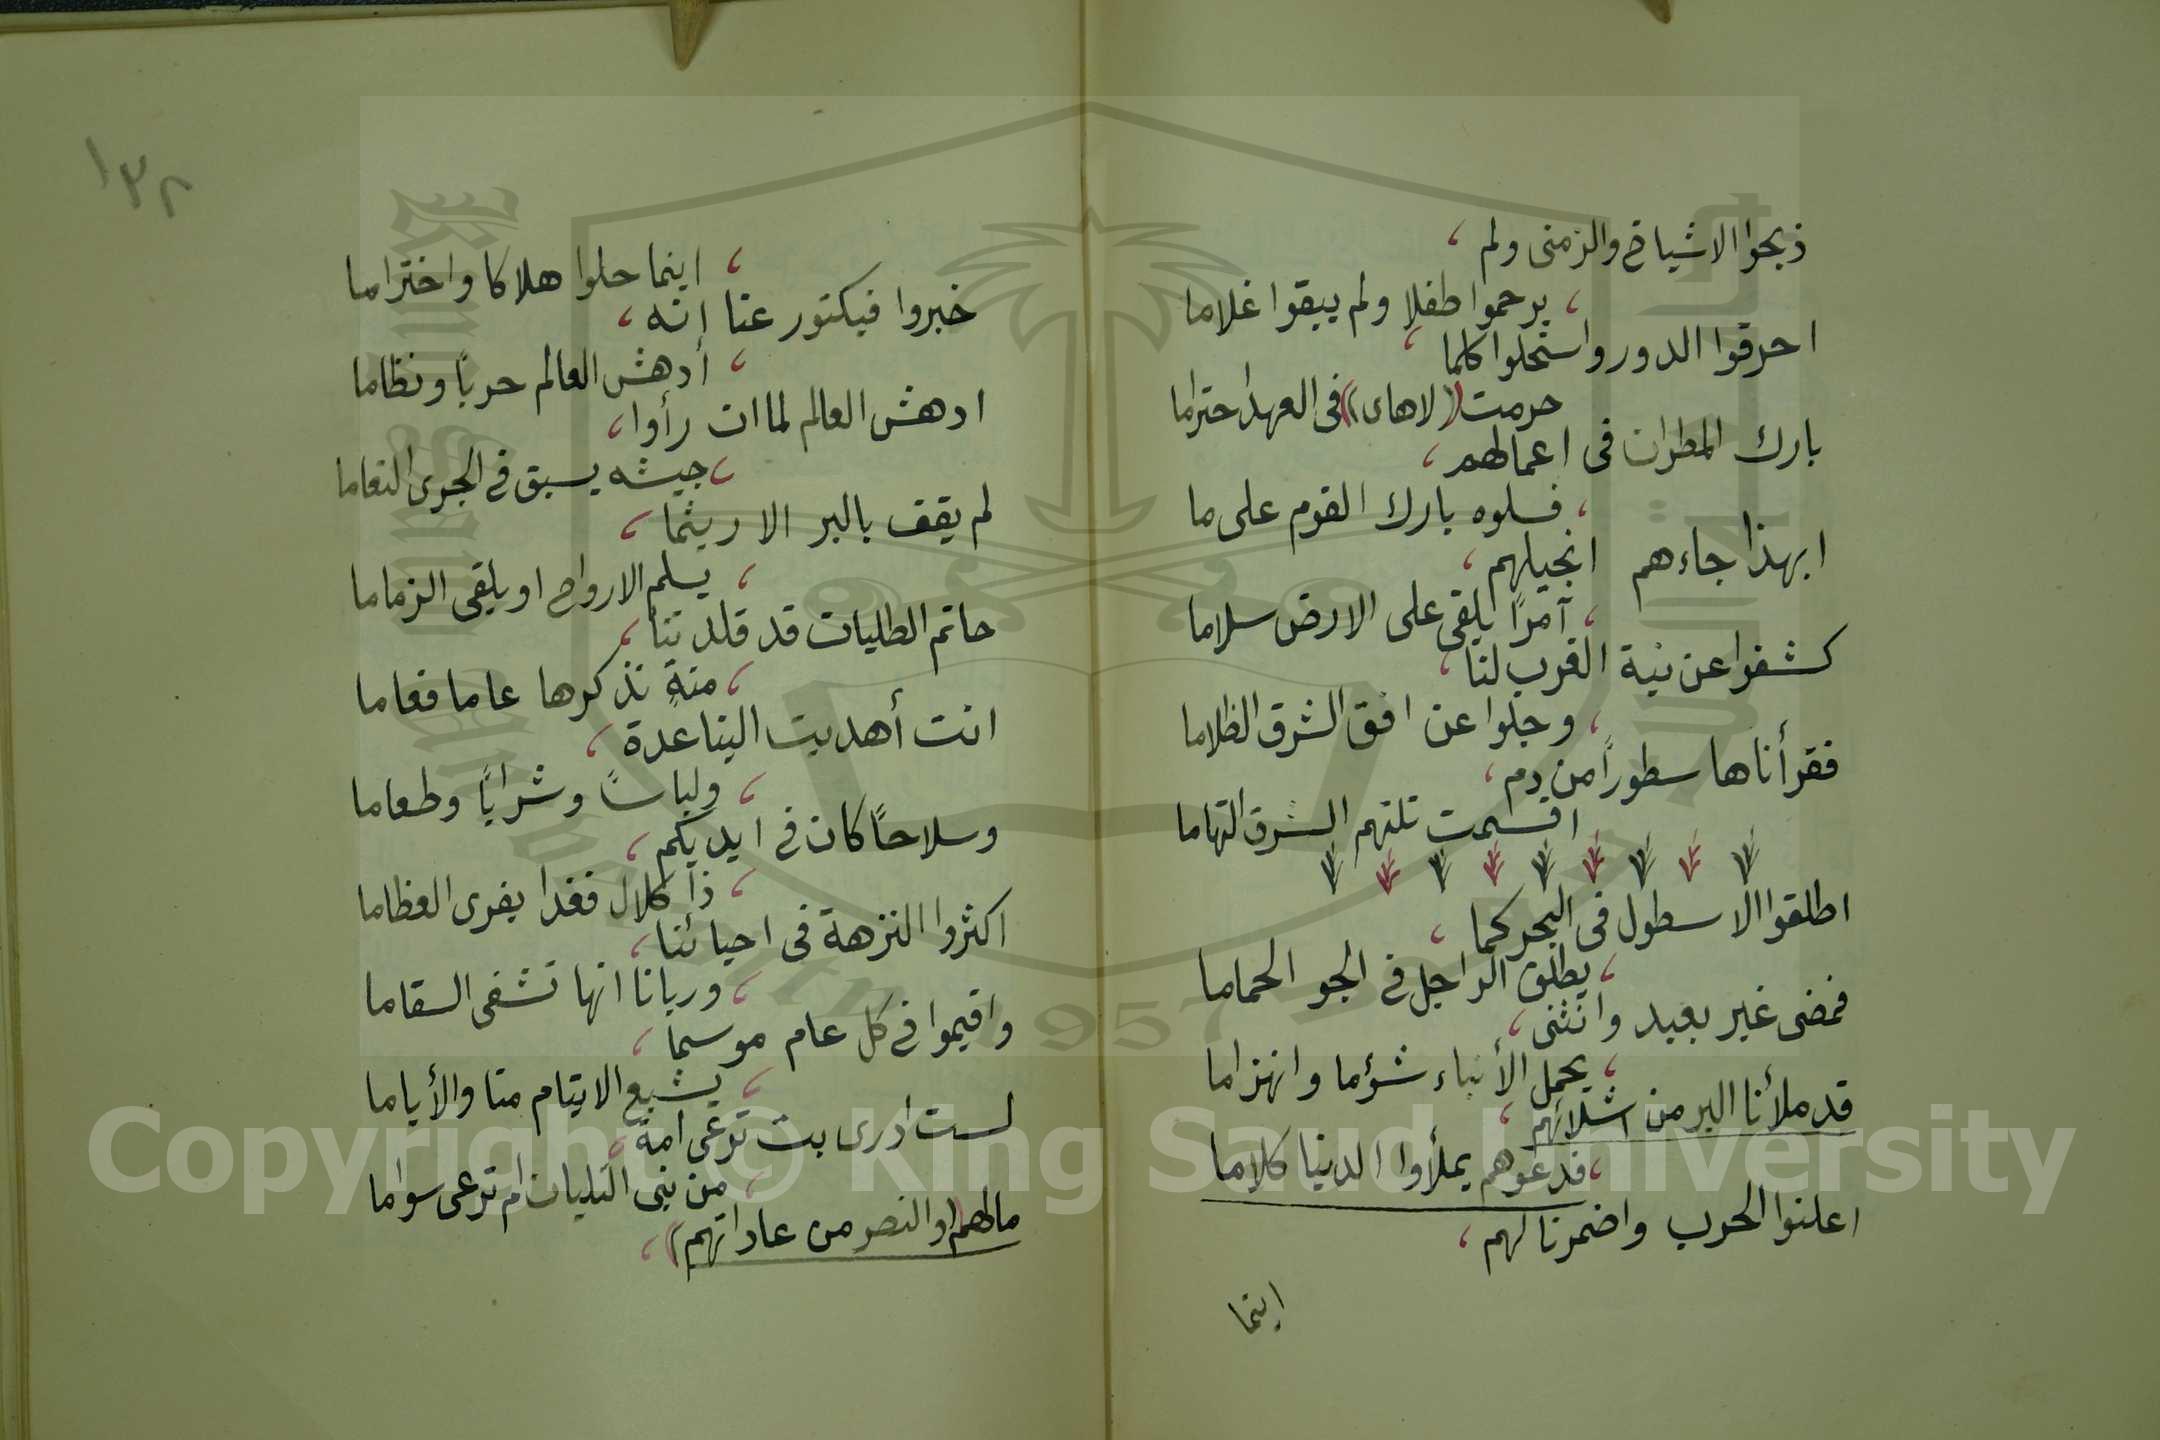 ذبحوا الاشياخ والزمنى ولم ،
، يرحموا طفلا ولم يبقوا غلاما
احرقوا الدور واستحلوا كلما ،
حرمت ((لاهاى)) فى العهد احتراما
بارك المطران فى اعمالهم ،
، فسلوه بارك القوم على ما
ابهذا جاءهم انجيلهم ،
، آمرًا يلقى على الارض سلاما
كشفوا عن نية الغرب لنا ،
، وجلوا عن افق الشرق الظلاما
فقرأناها سطورًا من دم ،
، اقسمت تلتهم الشرق التهاما
اطلقوا الاسطول فى البحر كما ،
، يطلق الراجل فى الجو الحماما
فمضى غير بعيد وانثنى ،
، يحمل الأنباء شؤما وانهزاما
قد ملأنا البر من اشلائهم ،
، فدعوهم يملأوا الدنيا كلاما
اعلنوا الحرب واضمرنا لهم ،
اينما
١٣٢
، اينما حلوا هلاكا واختراما
خبروا فيكتور عنا انه ،
، أدهش العالم حربًا ونظاما
ادهش العالم لما ان رأوا ،
، جيشه يسبق فى الجرى النعاما
لم يقف بالبر الا ريثما ،
، يسلم الارواح او يلقى الزماما
حاتم الطليان قد قلدتنا ،
، منةً نذكرها عاما فعاما
انت أهديت الينا عدة ،
، ولباسًا وشرابًا وطعاما
وسلاحًا كان فى ايديكم ،
، ذا كلال فغدا يفرى العظاما
اكثروا النزهة فى احيائنا ،
، وربانا انها تشفى السقاما
واقيموا فى كل عام موسمًا ،
، يشبع الايتام منا والأياما
لست ادرى بت ترعى امة ،
، من بنى التليان ام ترعى سواما
مالهم (والنصر من عاداتهم) ،
Copyright © King Saud University
King Saud University
1957